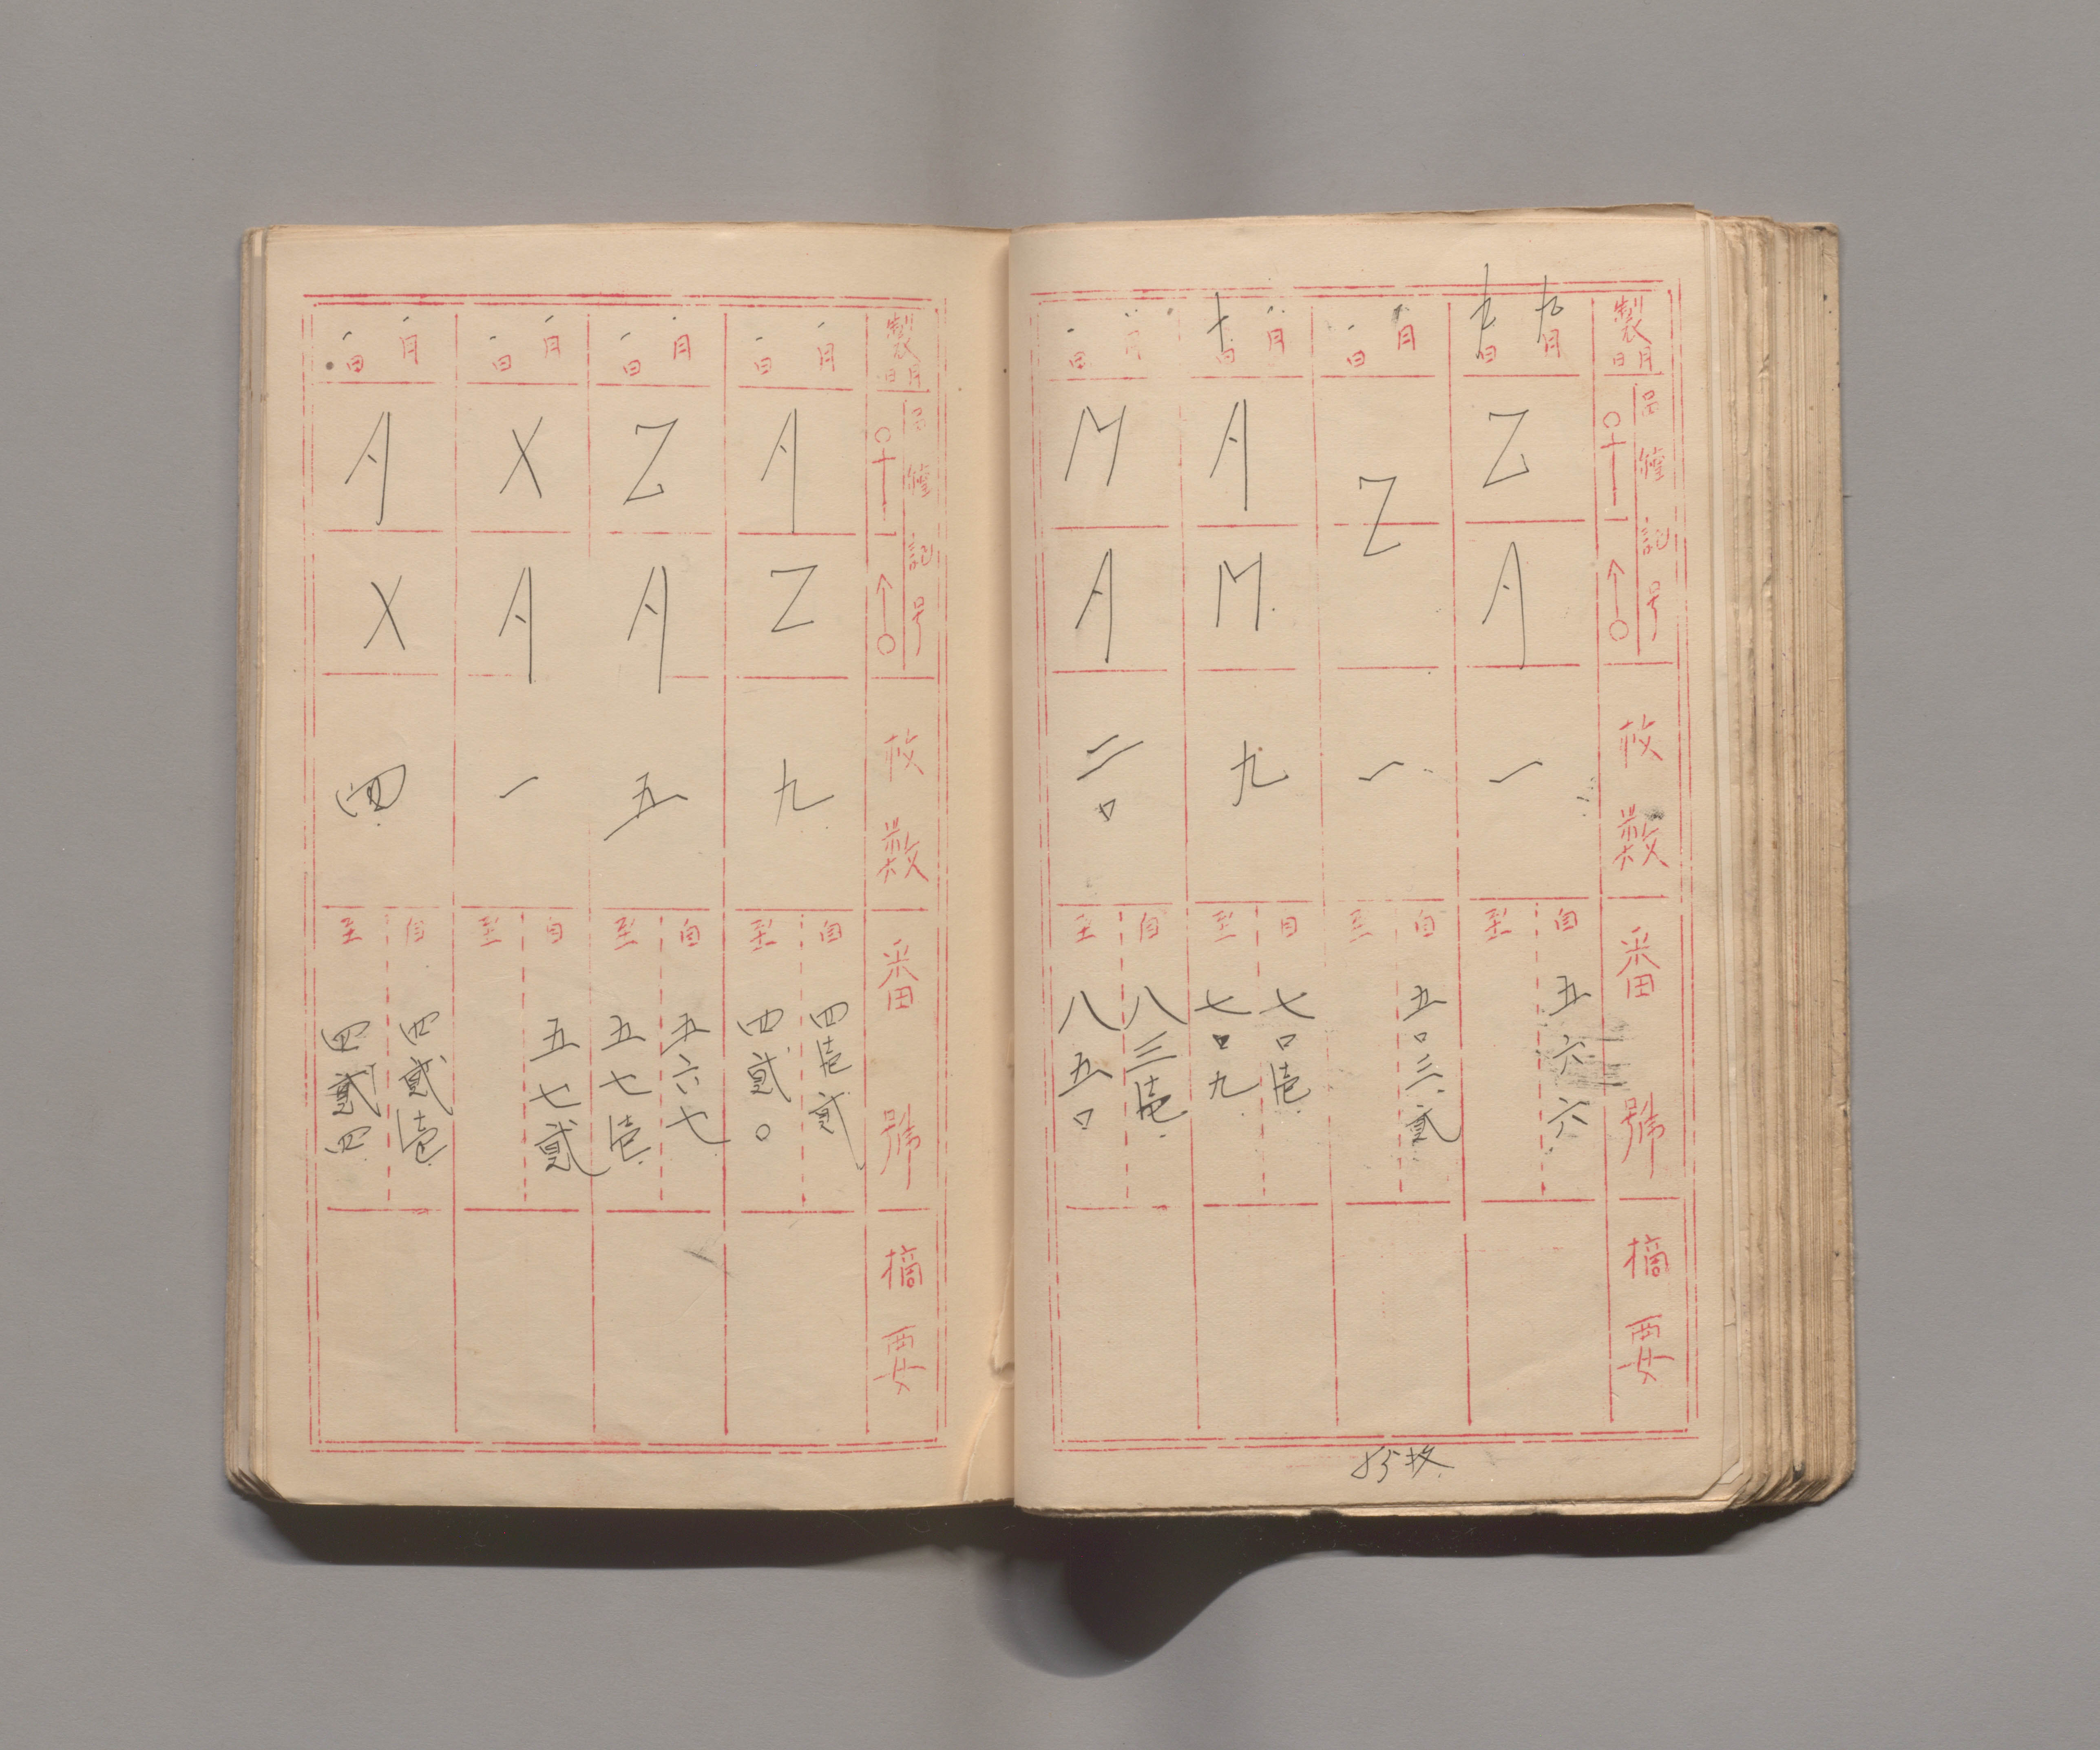 製月日
品種記号
♀ ↑
枚数
番號
摘要
九月
九日
Z
A
一
自 五六六
至
月
日
Z
一
自 五〇三貳
至
月
十日
A
M
九
自 七〇壱
至 七〇九
月
日
M
A
二〇
自 八三壱
至 八五〇
製月日
品種記号
枚数
番號
摘要
月
日
A
Z
九
自 四壱貳
至 四貳〇
月
日
Z
A
五
自 五六七
至 五七壱
月
日
X
A
一
自 五七貳
至
月
日
A
X
四
自 四貳壱
至 四貳四